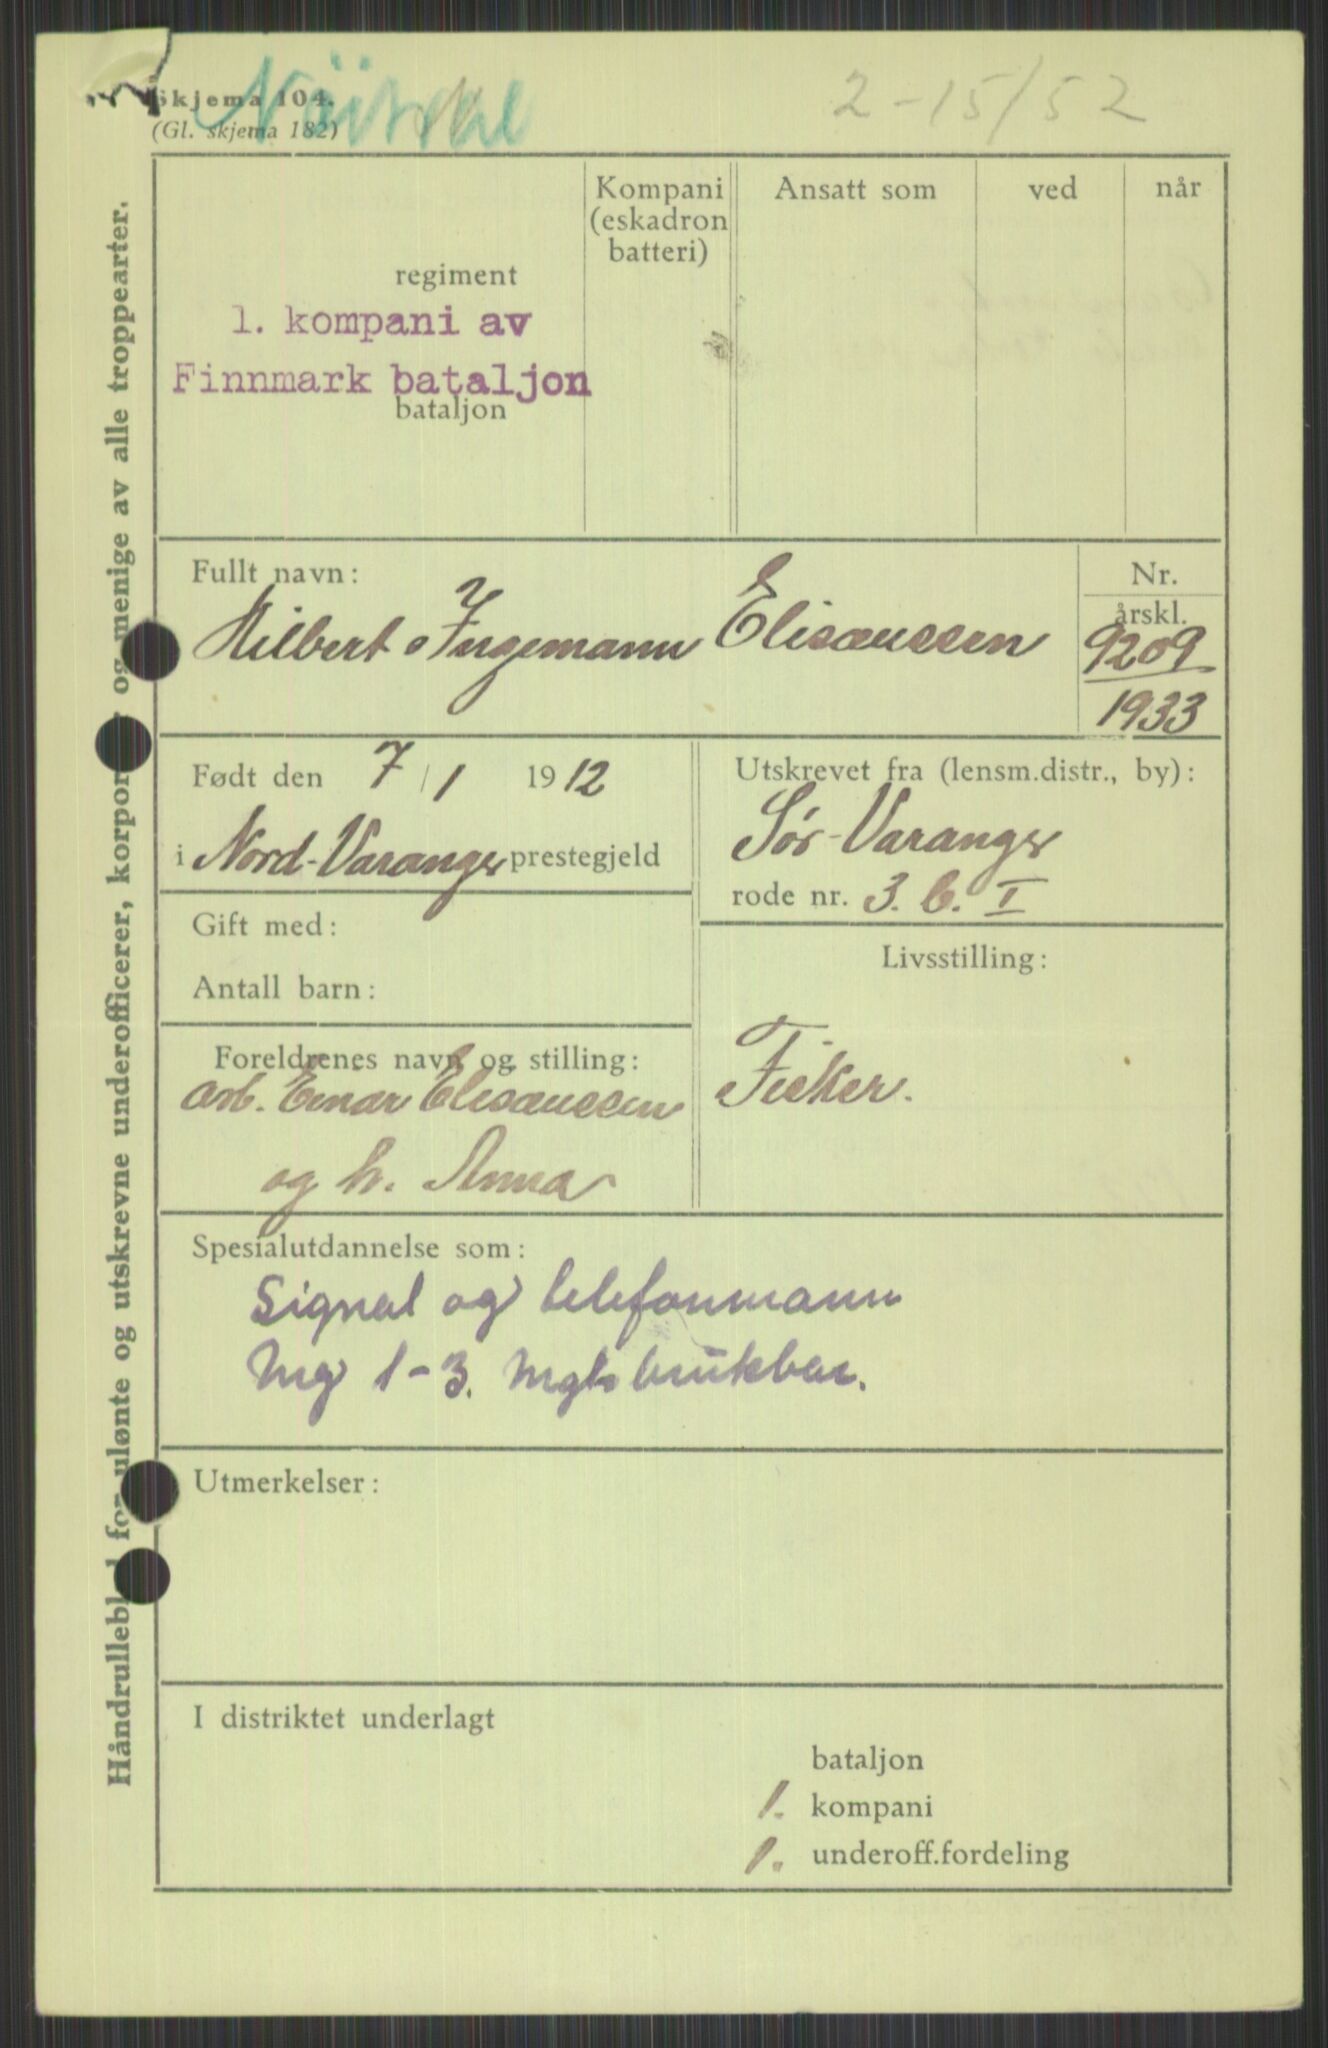 2-15/52
Skjema 104.
(Gl. skjema 182)
Kompani
(eskadron
batteri)
Ansatt som
ved
når
regiment
1. kompani av
Finnmark bataljon
bataljon
Fullt navn:
Hilbert Ingemann Elisæussen
Nr.
årskl.
9209
1933
Født den 7/1 1912
i Nord-Varanger prestegjeld
Utskrevet fra (lensm.distr., by):
Sør-Varanger
rode nr. 3. b. I
Gift med:
Antall barn:
Livsstilling:
Fisker.
Foreldrenes navn og stilling:
arb. Einar Elisæussen
og h. Anna
Spesialutdannelse som:
Signal og telefonmann
Mg 1-3. brukbar.
Utmerkelser:
I distriktet underlagt
bataljon
1. kompani
1. underoff.fordeling
Håndrulleblad for ulønte og utskrevne underofficerer, korporaler og menige av alle troppearter.